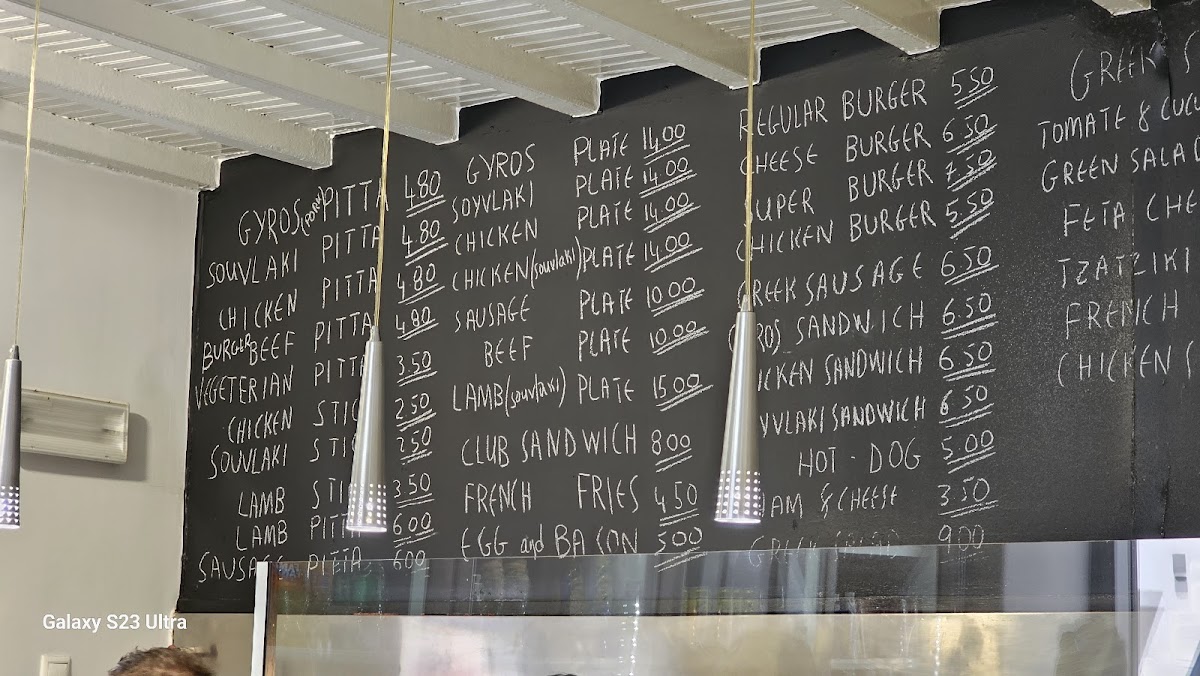 GYROS (PORK) PITTA 4.80
SOUVLAKI PITTA 4.80
CHICKEN PITTA 4.80
BURGER BEEF PITTA 4.80
VEGETERIAN PITTA 3.50
CHICKEN STIC 2.50
SOUVLAKI STIC 2.50
LAMB STI 3.50
LAMB PITT 6.00
SAUSA PITTA 6.00
GYROS PLATE 14.00
SOYVLAKI PLATE 14.00
CHICKEN PLATE 14.00
CHICKEN (souvlaki) PLATE 14.00
SAUSAGE PLATE 10.00
BEEF PLATE 10.00
LAMB (souvlaki) PLATE 15.00
CLUB SANDWICH 8.00
FRENCH FRIES 4.50
EGG and BACON 5.00
REGULAR BURGER 5.50
CHEESE BURGER 6.50
SUPER BURGER 7.50
CHICKEN BURGER 5.50
GREEK SAUSAGE 6.50
ROS SANDWICH 6.50
ICKEN SANDWICH 6.50
YVLAKI SANDWICH 6.50
HOT-DOG 5.00
AM & CHEESE 3.50
GREEK SALAD 9.00
GREEK S
TOMATE & CUC
GREEN SALAD
FETA CHE
TZATZIKI
FRENCH
CHICKEN S
Galaxy S23 Ultra